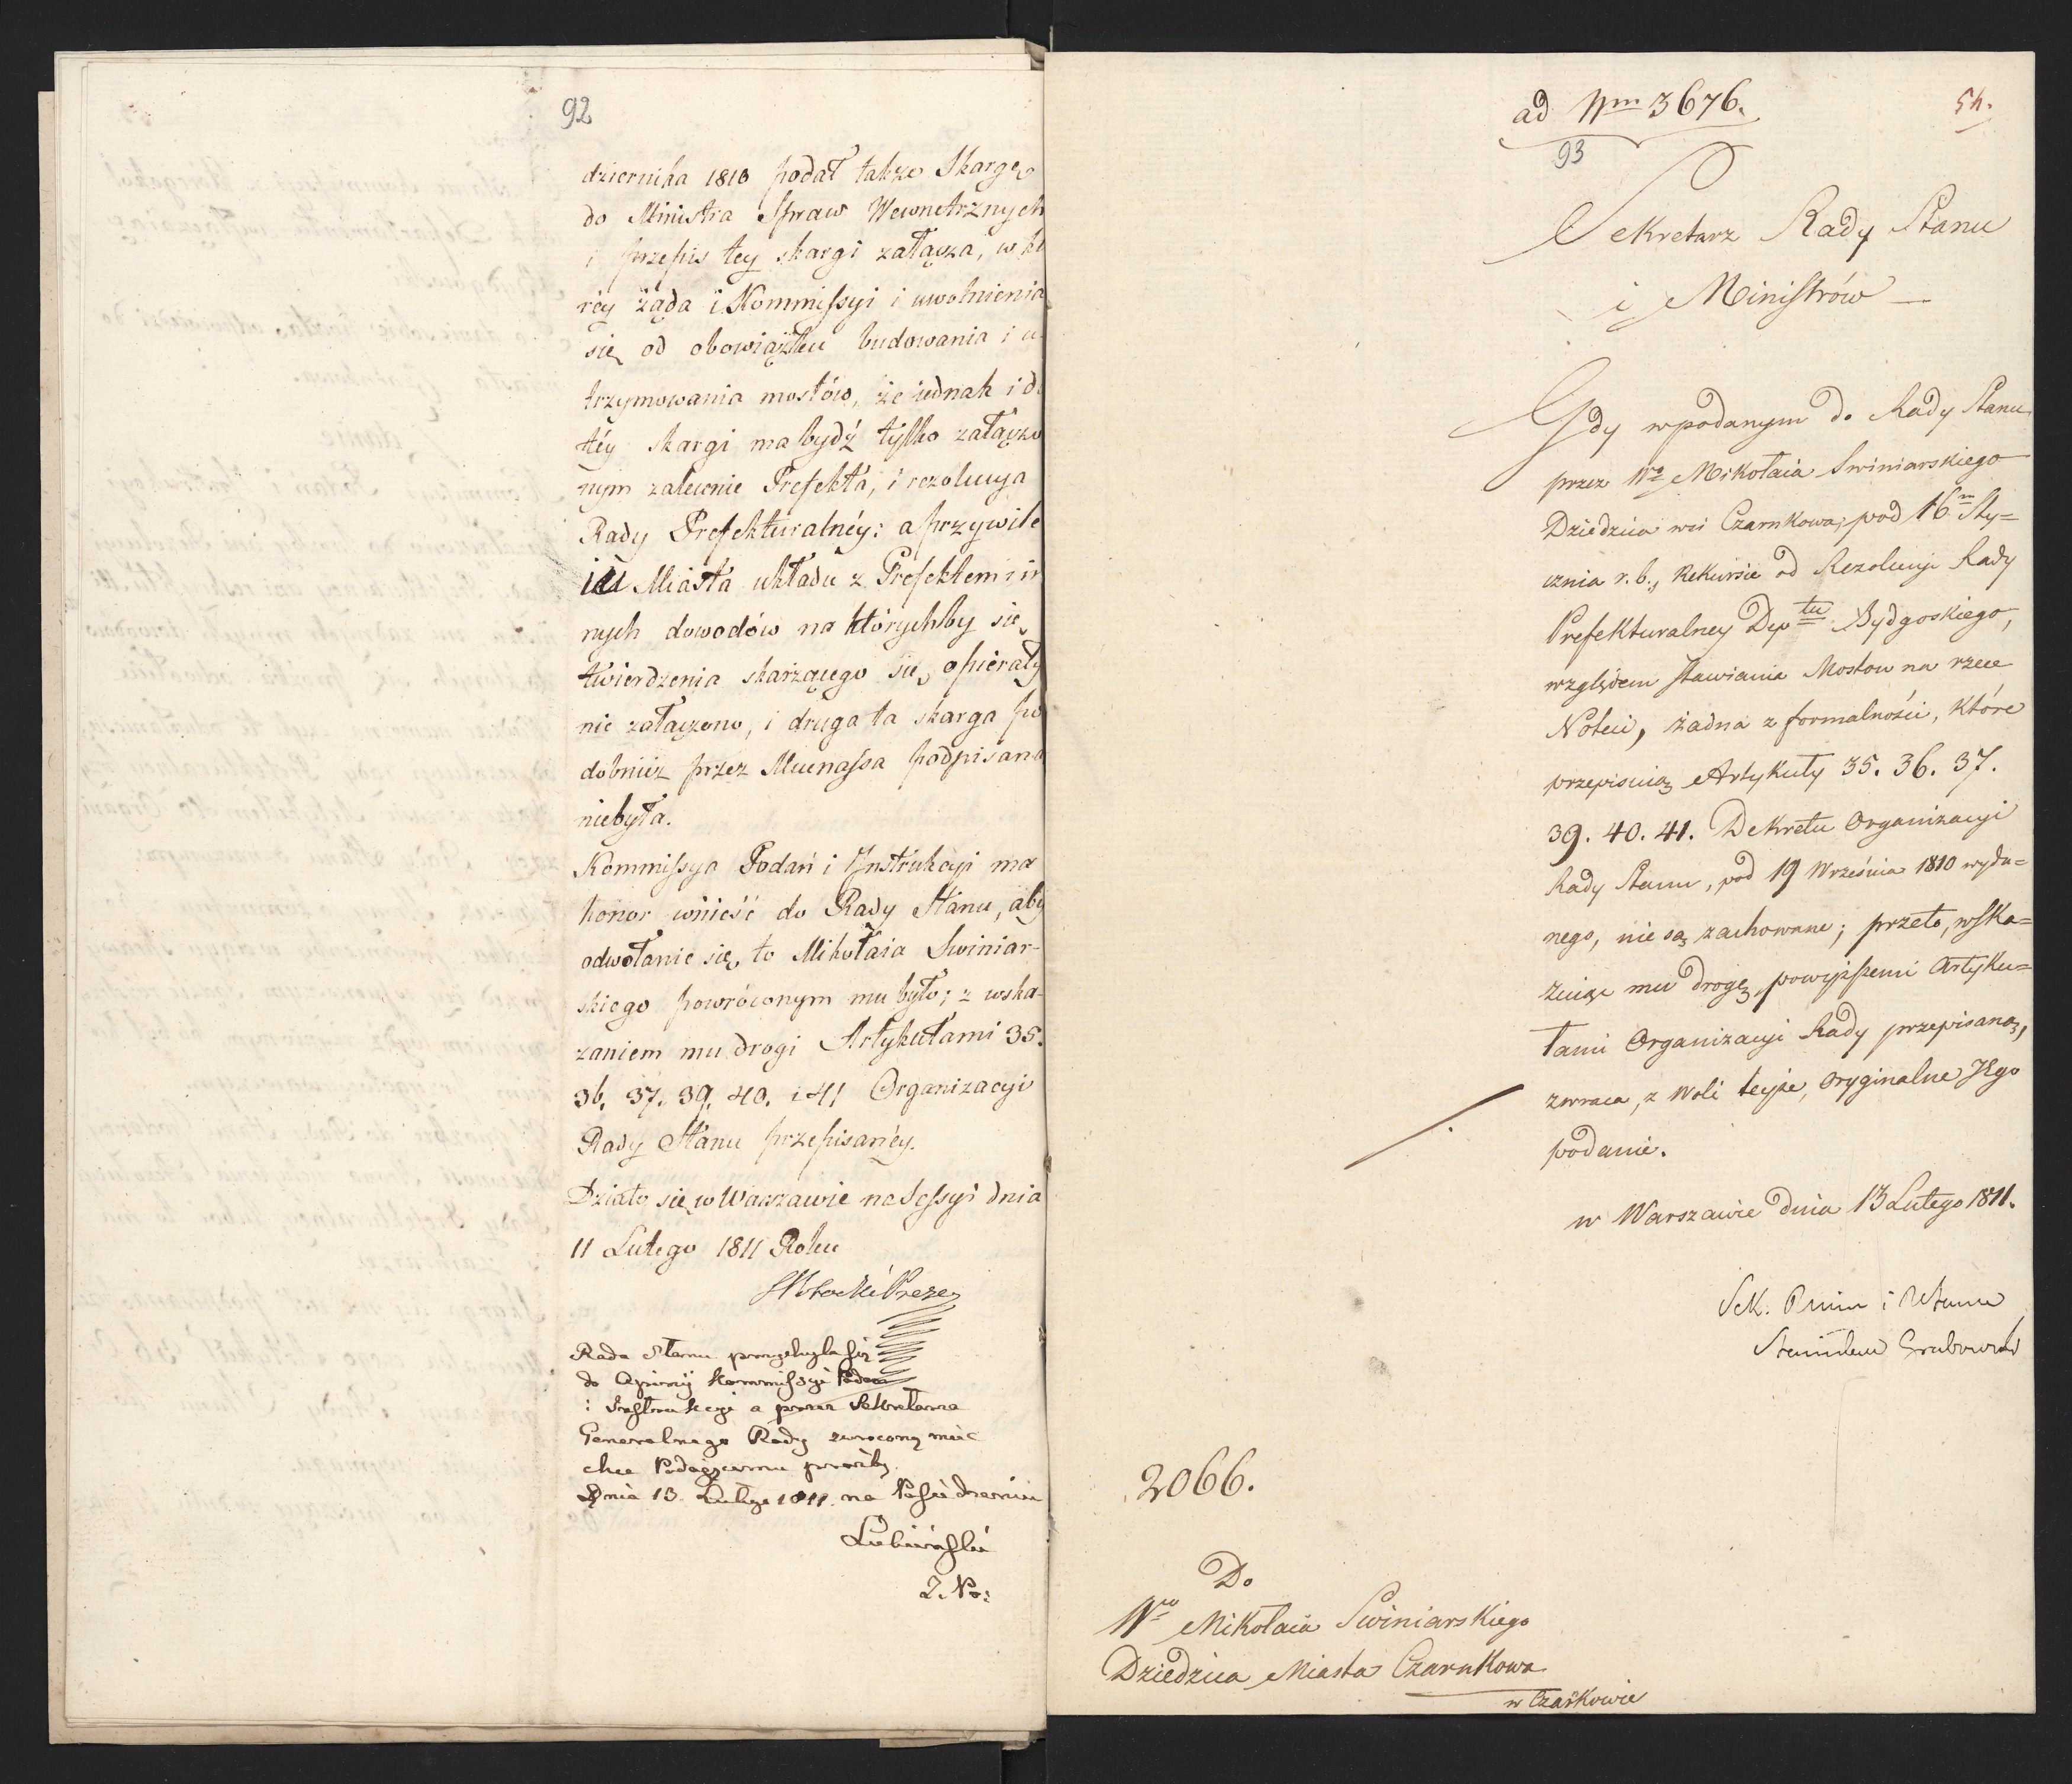 92
dziernika 1810 podał także Skargę
do Ministra Spraw Wewnetrznych
i przepis tey skargi załącza, w kt
réy żąda i Kommissyi i uwolnienia
się od obowiązku budowania i u
trzymowania mostów, że iednak i do
téy skargi ma bydź tylko załączo
nym zalecenie Prefekta, i rezolucya
Rady Prefekturalnéy: a przywile
iu Miasta układu z Prefektem i in
nych dowodów na którychby się
twierdzenia skarżącego się opierały
nie załączono, i druga ta skarga po
dobnież przez Mecenassa podpisana
niebyła.
Kommissya Podań i Instrukcyi ma
honor wnieść do Rady Stanu, aby
odwołanie się to Mikołaia Swiniar-
skiego powróconym mu było; z wska-
zaniem mu drogi Artykułami 35.
36. 37. 39. 40. i 41 Organizacyi
Rady Stanu przepisanéy.
Działo się w Warszawie na Sessyi dnia
11 Lutego 1811 Roku
Rada Stanu przychyla się
do Opinij Kommissyi Podań
i Instrukcyi a przez Sekretarza
Generalnego Rady zwroconą mieć
chce Podaiącemu prozbę.
Dnia 13. Lutego 1811. na Posiedzeniu
Łubieński
ad Nrm 3676.
54.
93
Sekretarz Rady Stanu
i Ministrów
Gdy w podanym do Rady Stanu
przez Wo Mikołaia Swiniarskiego
Dziedzica wsi Czarnkowa, pod 16m Sty=
cznia r. b., Rekursie od Rezolucyi Rady
Prefekturalney Deptu Bydgoskiego,
względem stawiania Mostow na rzece
Noteci, żadna z formalności, które
przepisuią Artykuły 35. 36. 37.
39. 40. 41. Dekretu Organizacyi
Rady Stanu, pod 19 Września 1810 wyda=
nego, nie są zachowane; przeto, wska=
zuiąc mu drogę powyższemi Artyku=
łami Organizacyi Rady przepisaną,
zwraca, z Woli teyże, Oryginalne Jego
podanie.
w Warszawie dnia 13 Lutego 1811.
Stanisław Grabowski
2066.
Do
Wgo Mikołaia Swiniarskiego
Dziedzica Miasta Czarnkowa
w Czarkowie